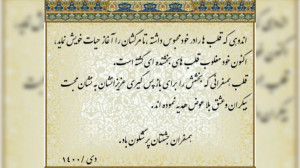 اندوهی که قلب ها را در خود محبوس داشته تا مرگشان را آغاز حیات خویش نماید،
اکنون خود مغلوب قلب های بخشنده ای گشته است.
قلب همسفرانی که بخشش را برای باز پس گیری عزیزانشان به نشان محبت
بیکران و عشق بلاعوض هدیه نموده اند.
همسفران جشنتان پر شگون باد.
دی / ۱۴۰۰